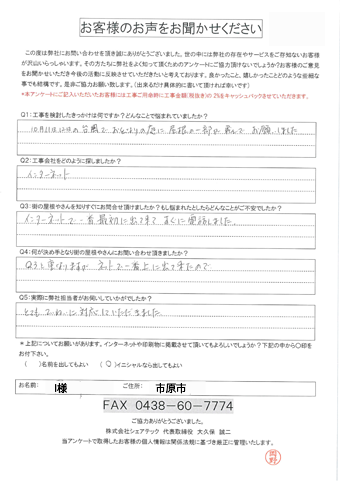 お客様のお声をお聞かせください
この度は弊社にお問い合わせを頂き誠にありがとうございました。世の中には弊社の存在やサービスをご存知ないお客様
が沢山いらっしゃいます。その方たちに弊社をよく知って頂くためのアンケートにご協力頂けないでしょうか?お客様のご意見
をお聞かせいただき今後の活動に反映させていただきたいと考えております。良かったこと、嬉しかったことどのような些細な
事でも結構です。是非ご協力お願い致します。(出来るだけ具体的に書いて頂ければ幸いです)
*本アンケートにご記入いただいたお客様には工事ご用命時に工事金額(税抜き)の2%をキャッシュバックさせていただきます。
Q1:工事を検討したきっかけは何ですか?どんなことで悩まれていましたか?
台風で おとなりの庭に 屋根の一部が 飛んで お願いしました
Q2:工事会社をどのように探しましたか?
インターネット
Q3:街の屋根やさんを知りすぐにお問合せ頂けましたか?もし悩まれたとしたらどんなことがご不安でしたか?
インターネットで一番最初に出て来て すぐに電話しました。
Q4:何が決め手となり街の屋根やさんにお問い合わせ頂きましたか?
Q3と重なりますが ネットで一番上に出て来たので
Q5:実際に弊社担当者がお伺いしていかがでしたか?
とても ていねいに 対応していただきました
*上記についてお願いがあります。インターネットや印刷物に掲載させて頂いてもよろしいでしょうか?下記の中から○印を
お付下さい。
( )名前を出してもよい (○)イニシャルなら出してもよい
お名前: I様 ご住所: 市原市
FAX 0438-60-7774
ご協力ありがとうございました。
株式会社シェアテック 代表取締役 大久保 誠二
当アンケートで取得したお客様の個人情報は関係法規に基づき厳正に管理いたします。